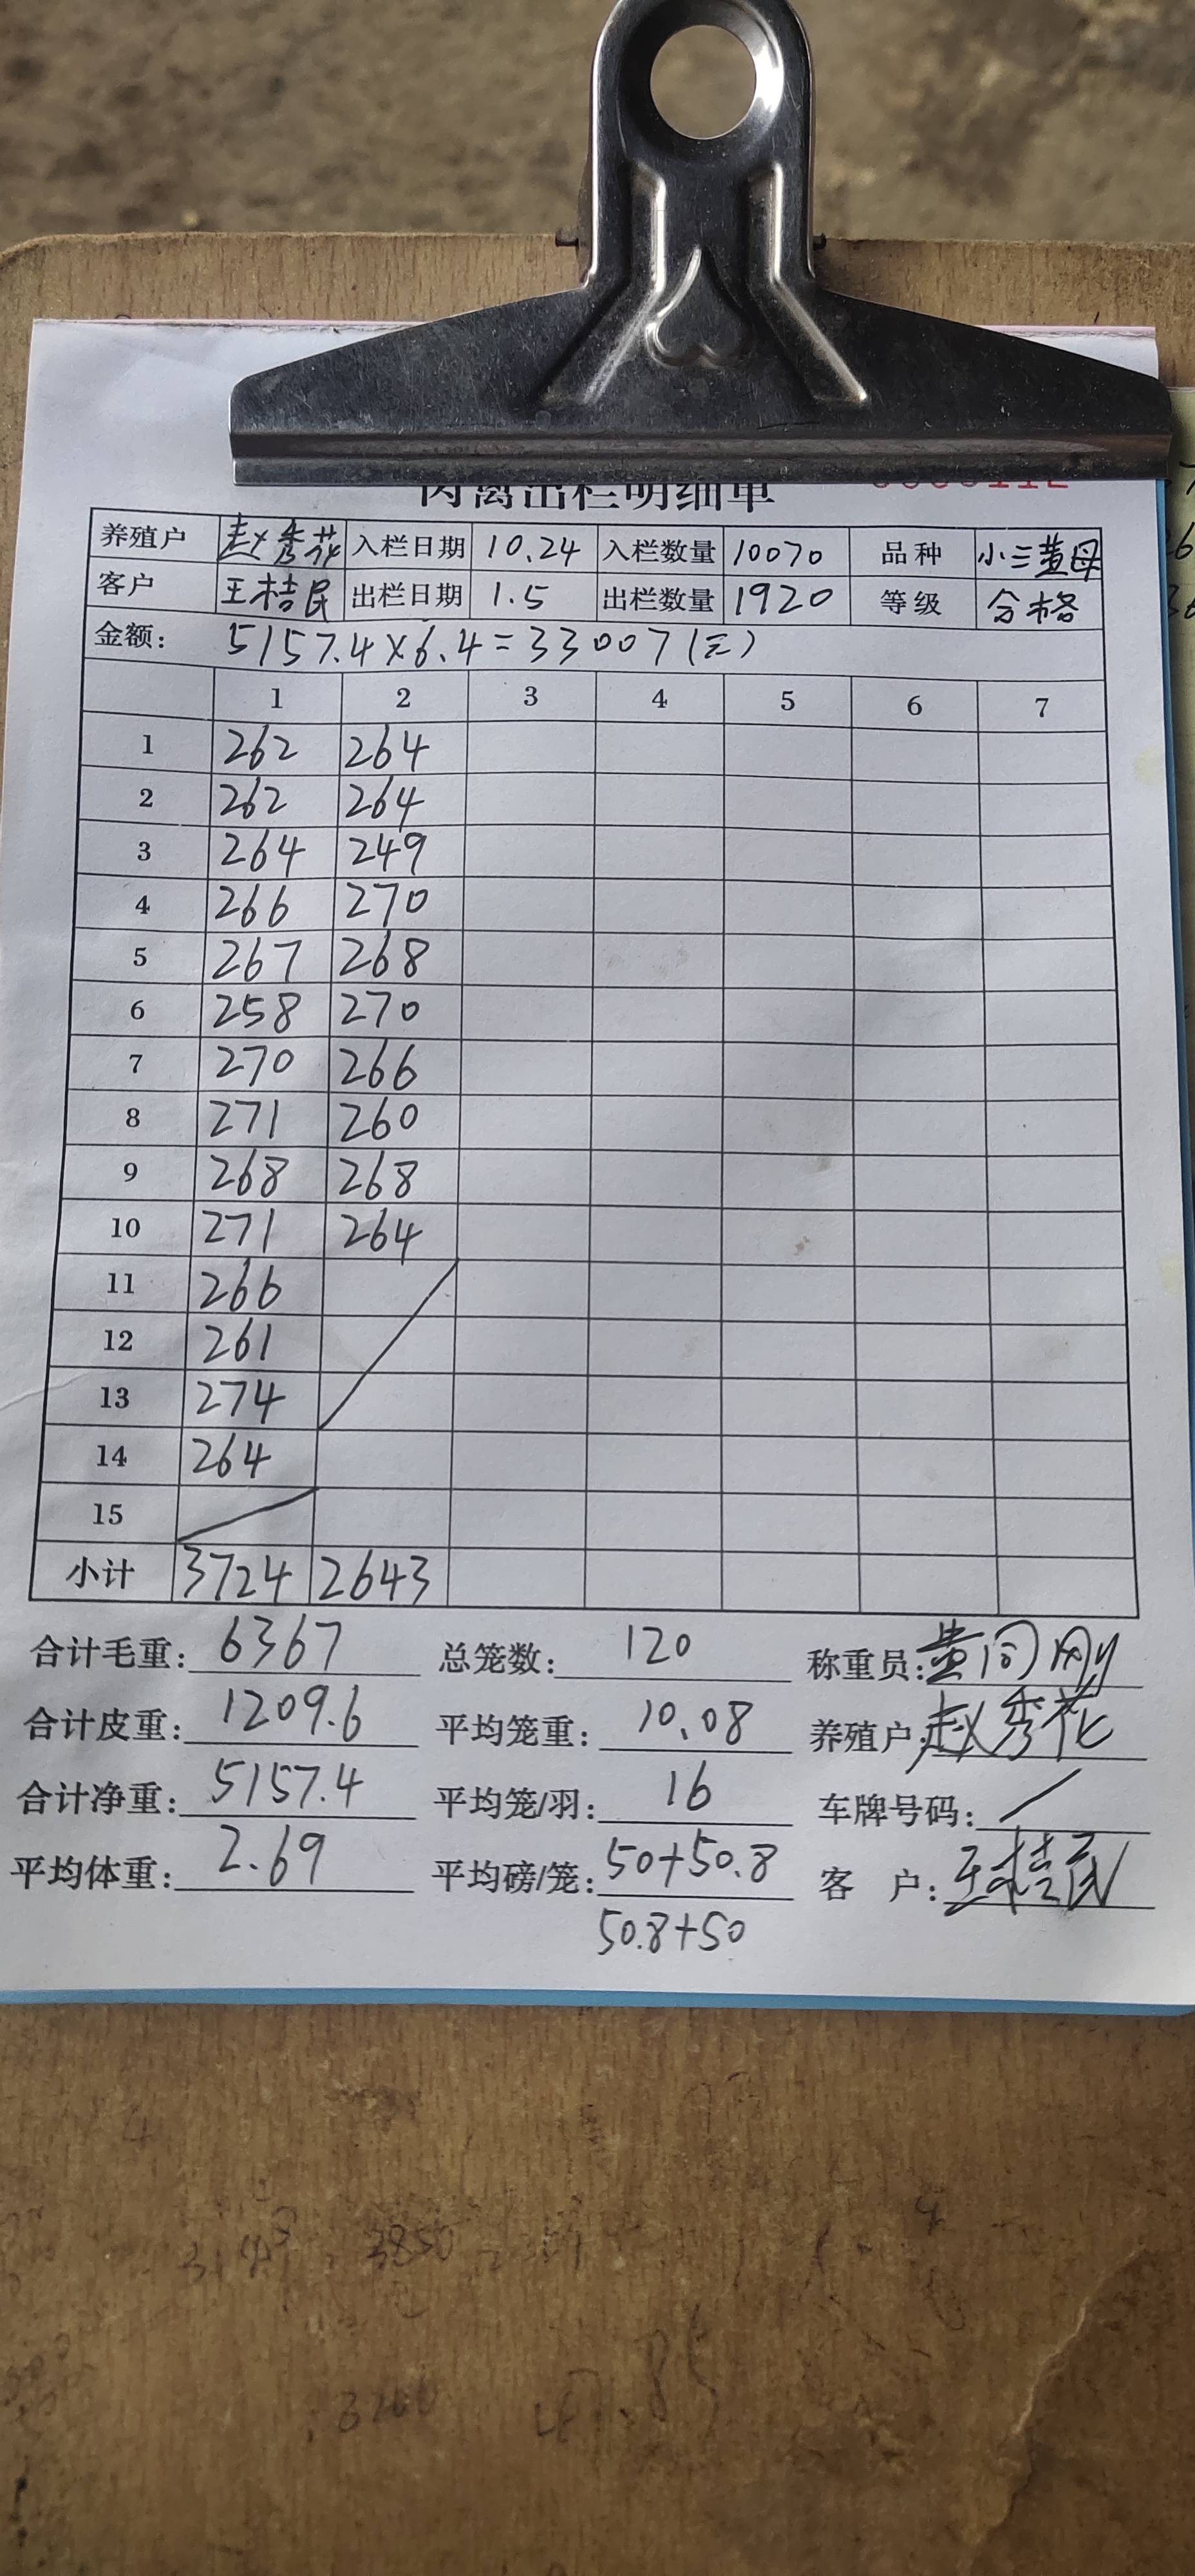 肉禽出栏明细单
养殖户 赵秀花 入栏日期 10.24 入栏数量 10070 品种 小三黄母
客户 王桔民 出栏日期 1.5 出栏数量 1920 等级 合格
金额: 5157.4×6.4=33007(元)
1 2 3 4 5 6 7
1 262 264
2 262 264
3 264 249
4 266 270
5 267 268
6 258 270
7 270 266
8 271 260
9 268 268
10 271 264
11 266
12 261
13 274
14 264
15
小计 3724 2643
合计毛重: 6367 总笼数: 120 称重员: 黄同刚
合计皮重: 1209.6 平均笼重: 10.08 养殖户: 赵秀花
合计净重: 5157.4 平均笼/羽: 16 车牌号码: /
平均体重: 2.69 平均磅/笼: 50+50.8 客户: 王桔民
50.8+50